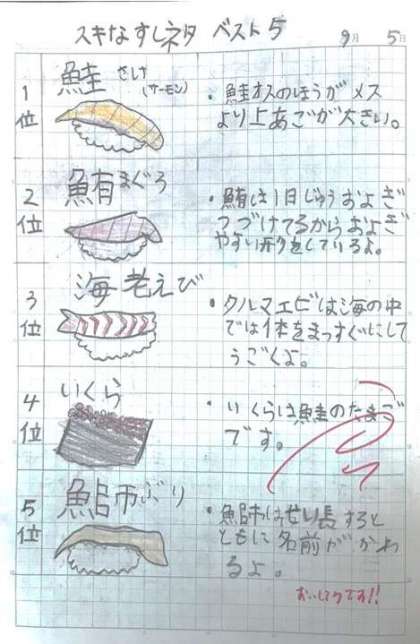 スキなすしネタ ベスト5 9月5日
1位
鮭 さけ
(サーモン)
・鮭オスのほうがメス
より上あごが大きい。
2位
鮪 まぐろ
・鮪は1日じゅうおよぎ
つづけてるからおよぎ
やすい形をしているよ。
3位
海老えび
・クルマエビは海の中
では体をまっすぐにして
うごくよ。
4位
いくら
・いくらは鮭のたまご
です。
5位
鰤 ぶり
・鰤はせい長すると
ともに名前がかわ
るよ。